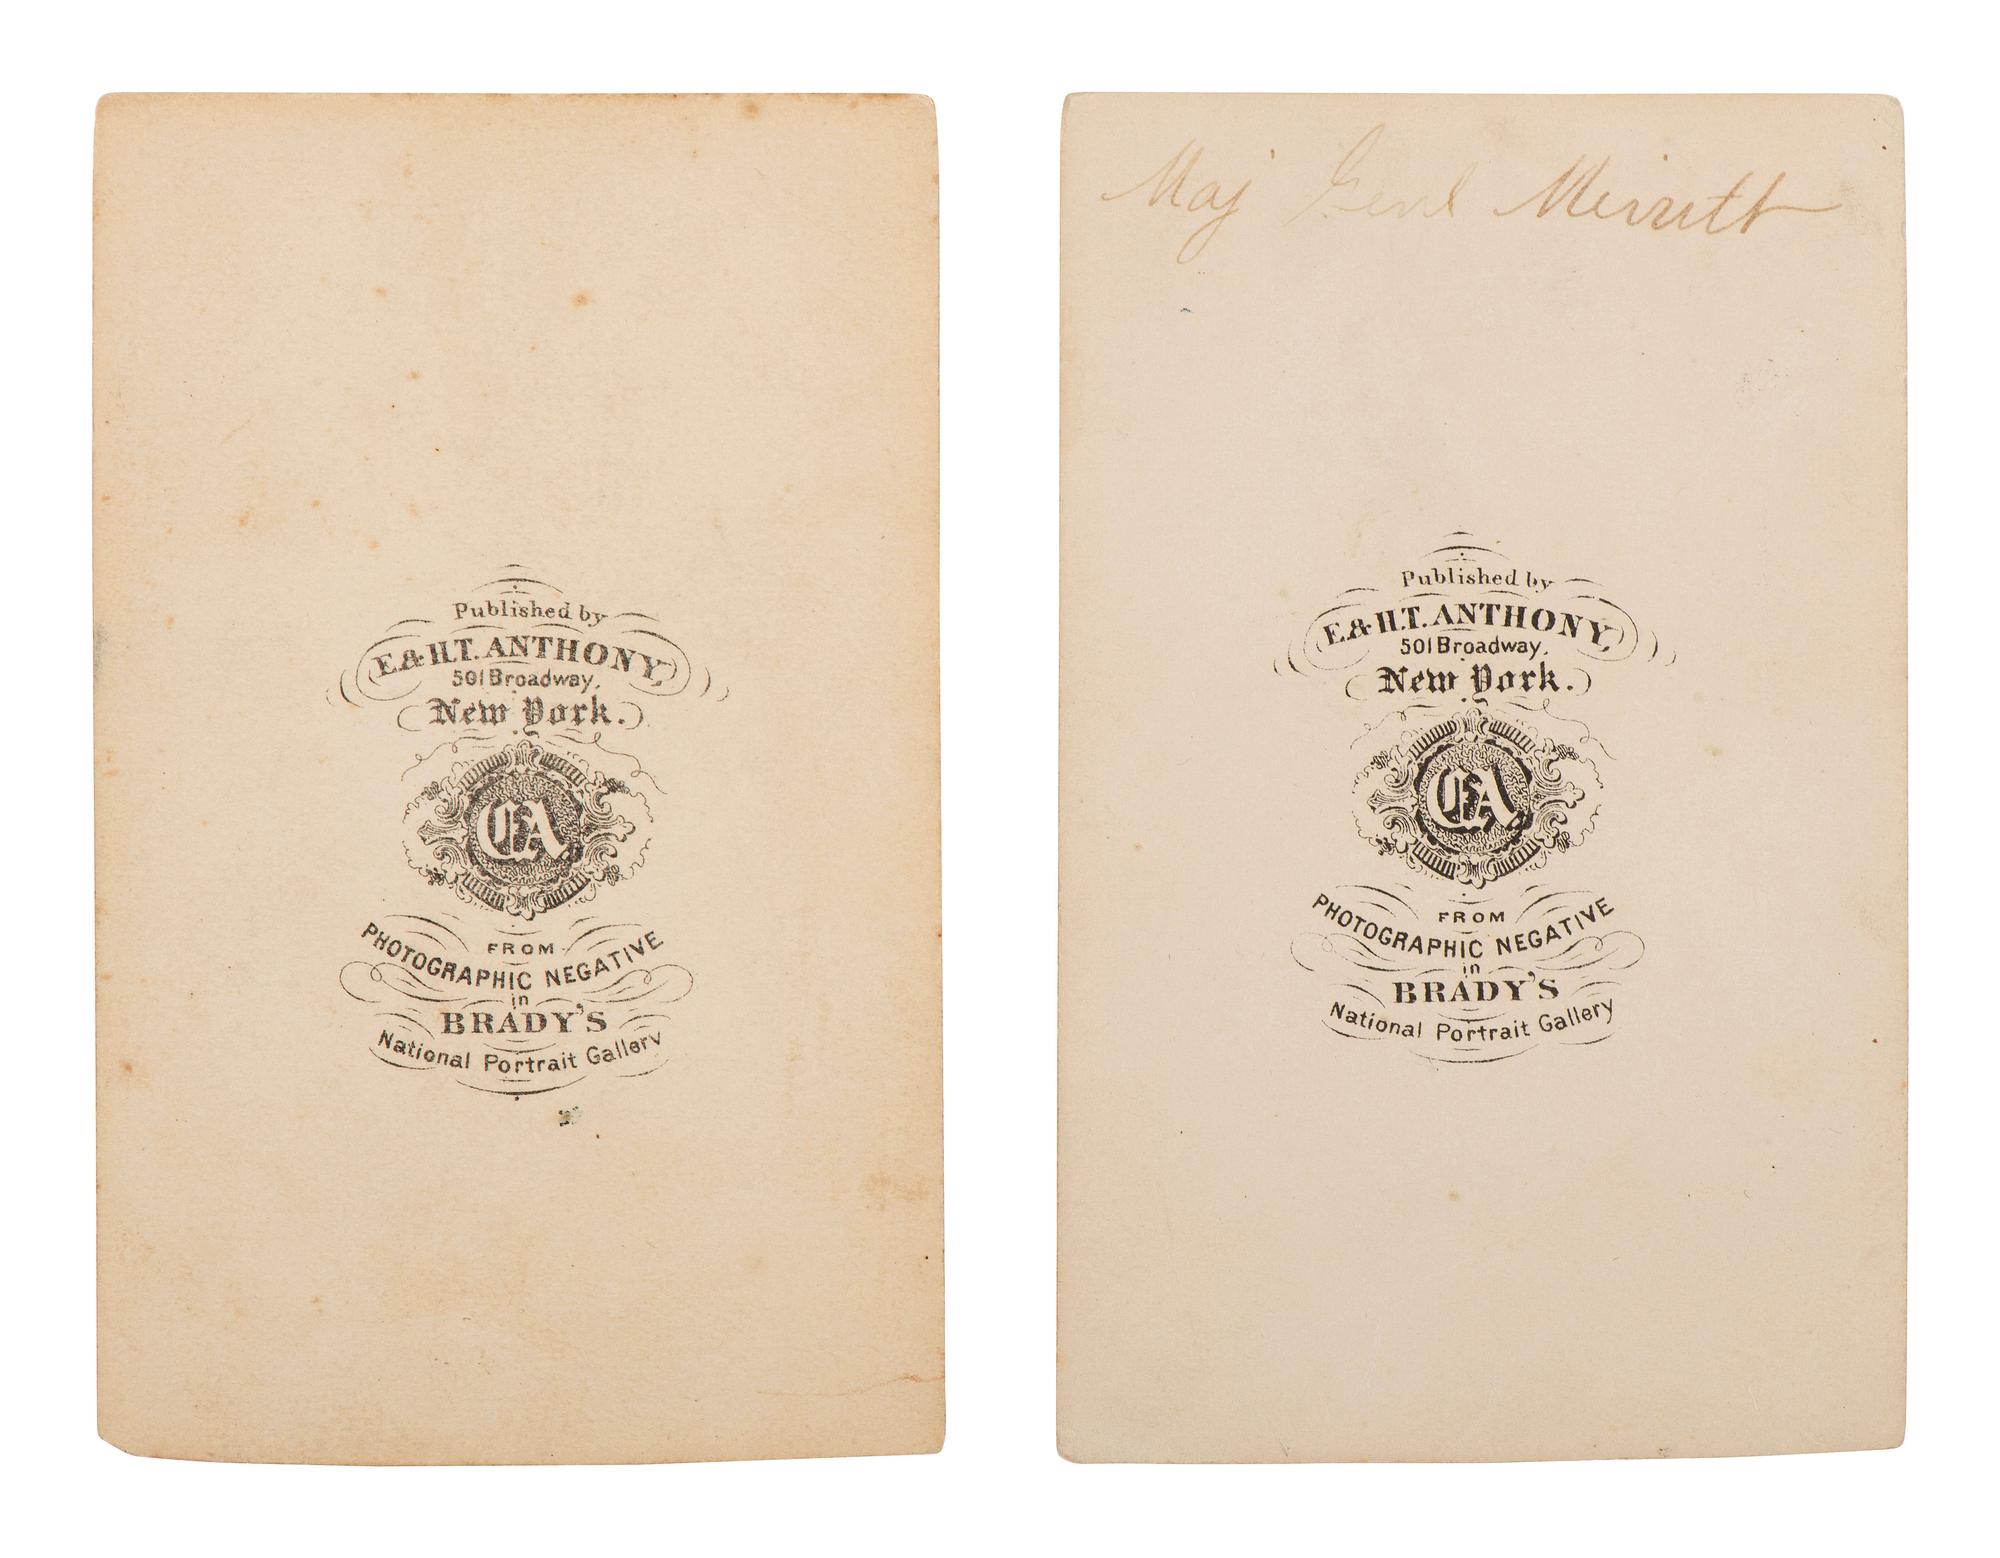 Published by
E. & H.T. ANTHONY,
501 Broadway,
New York.
EA
FROM
PHOTOGRAPHIC NEGATIVE
in
BRADY'S
National Portrait Gallery
Maj Genl Merritt
Published by
E. & H.T. ANTHONY,
501 Broadway,
New York.
EA
FROM
PHOTOGRAPHIC NEGATIVE
in
BRADY'S
National Portrait Gallery